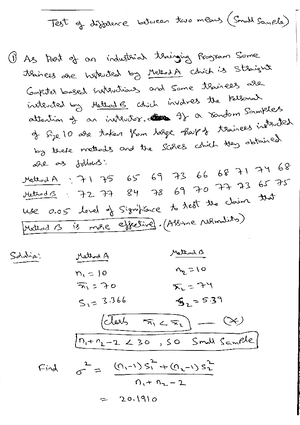 Test of difference between two means (Small Sample)
① As Part of an industrial training Program Some
trainees are instructed by Method A which is Straight
Computer based instructions and Some trainees are
instructed by Method B which involves the Personal
attention of an instructor. If a random Samples
of size 10 are taken from large of trainees instructed
by these methods and the Scores which they obtained
are as follows:
Method A : 71 75 65 69 73 66 68 71 74 68
Method B : 72 77 84 78 69 70 77 73 65 75
use 0.05 level of Significance to test the claim that
Method B is more effective. (Assume normality)
Solution: Method A Method B
n₁ = 10 n₂ = 10
x̄₁ = 70 x̄₂ = 74
S₁ = 3.366 S₂ = 5.39
x̄₁ < x̄₂ — (*)
n₁+n₂-2 < 30, SO Small Sample
Find σ² = (n₁-1)S₁² + (n₂-1)S₂² / n₁+n₂-2
= 20.1910